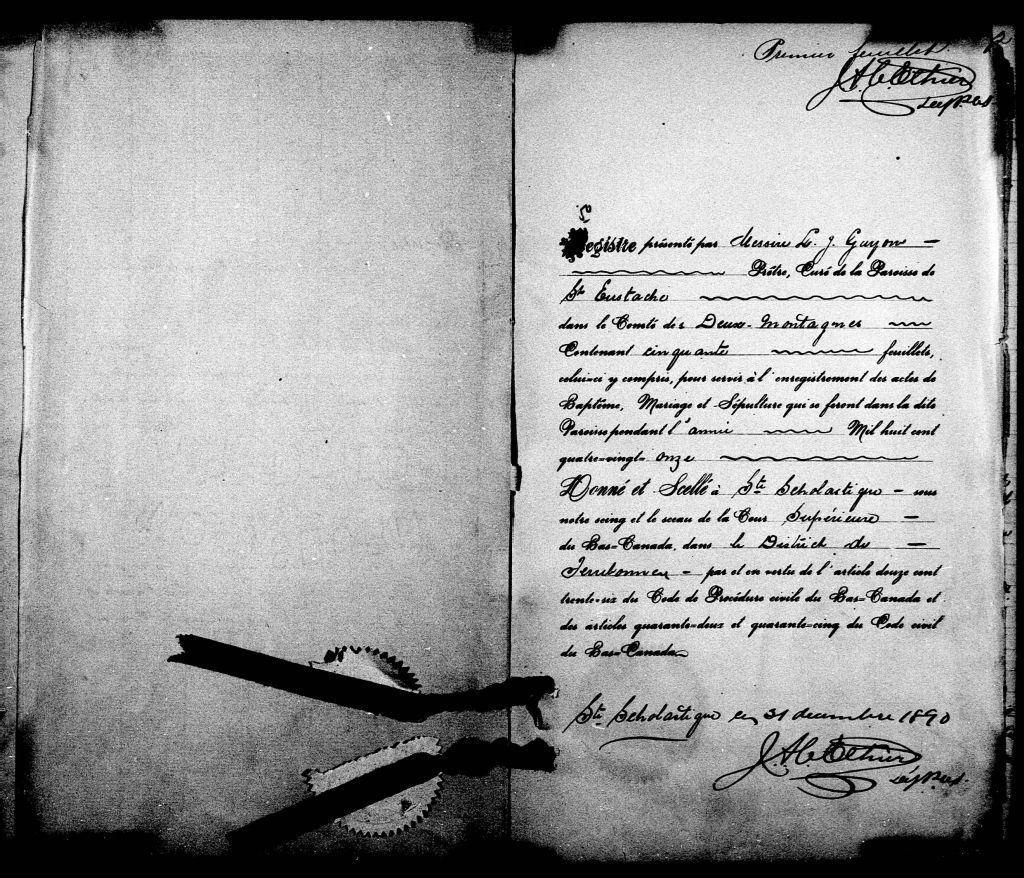 Premier feuillet.
J.A.C. Ethier
Dép. P.C.S.
Registre présenté par Messire L. J. Guyon
Prêtre, Curé de la Paroisse de
St Eustache
dans le Comté des Deux-Montagnes
Contenant cinquante feuillets,
celui-ci y compris, pour servir à l'enregistrement des actes de
Baptême, Mariage et Sépulture qui se feront dans la dite
Paroisse pendant l'année Mil huit cent
quatre-vingt-onze
Donné et Scellé à Ste Scholastique – sous
notre seing et le sceau de la Cour Supérieure –
du Bas-Canada, dans le District de –
Terrebonne – par et en vertu de l'article douze cent
trente-six du Code de Procédure civile du Bas-Canada et
des articles quarante-deux et quarante-cinq du Code civil
du Bas-Canada
Ste Scholastique ce 31 decembre 1890
J.A.C. Ethier
Dép. P.C.S.